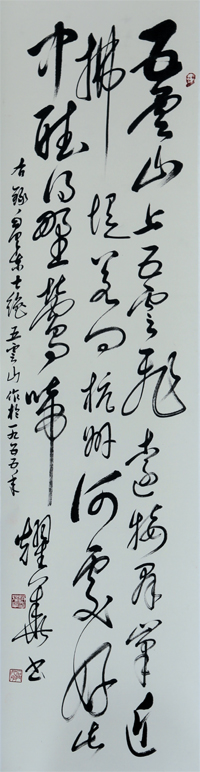 五雲山上五雲飛遠接群峯近
拂堤若问杭州何處好此
中聽得野鶯啼
右錄毛澤東七绝五雲山作於一九五五年
耀華书